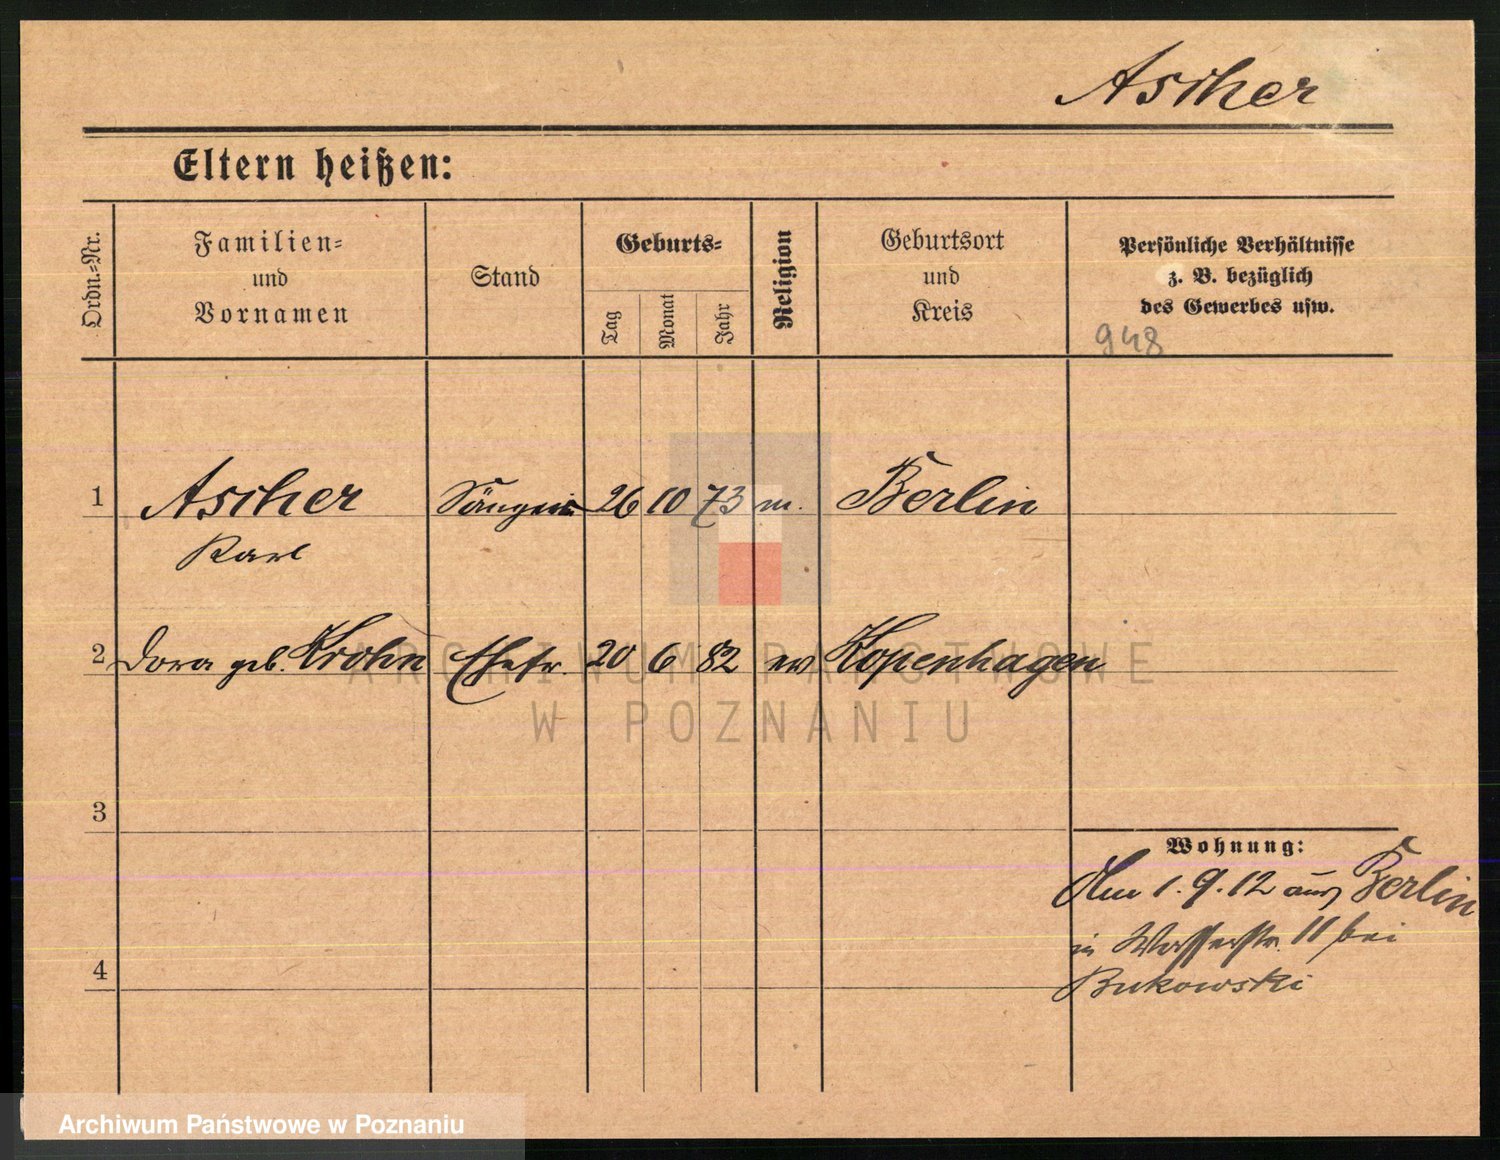 Ascher
Eltern heißen:
Ordn.=Nr.
Familien=
und
Vornamen
Stand
Geburts=
Tag
Monat
Jahr
Religion
Geburtsort
und
Kreis
Persönliche Verhältnisse
z. B. bezüglich
des Gewerbes usw.
948
1 Ascher Sänger 26 10 73 m. Berlin
Karl
2 Dora geb. Krohn Ehefr. 20 6 82 ev Kopenhagen
3
Wohnung:
Am 1.9.12 aus Berlin
in Wasserstr. 11 bei
Bukowski
4
ARCHIWUM PAŃSTWOWE
W POZNANIU
Archiwum Państwowe w Poznaniu